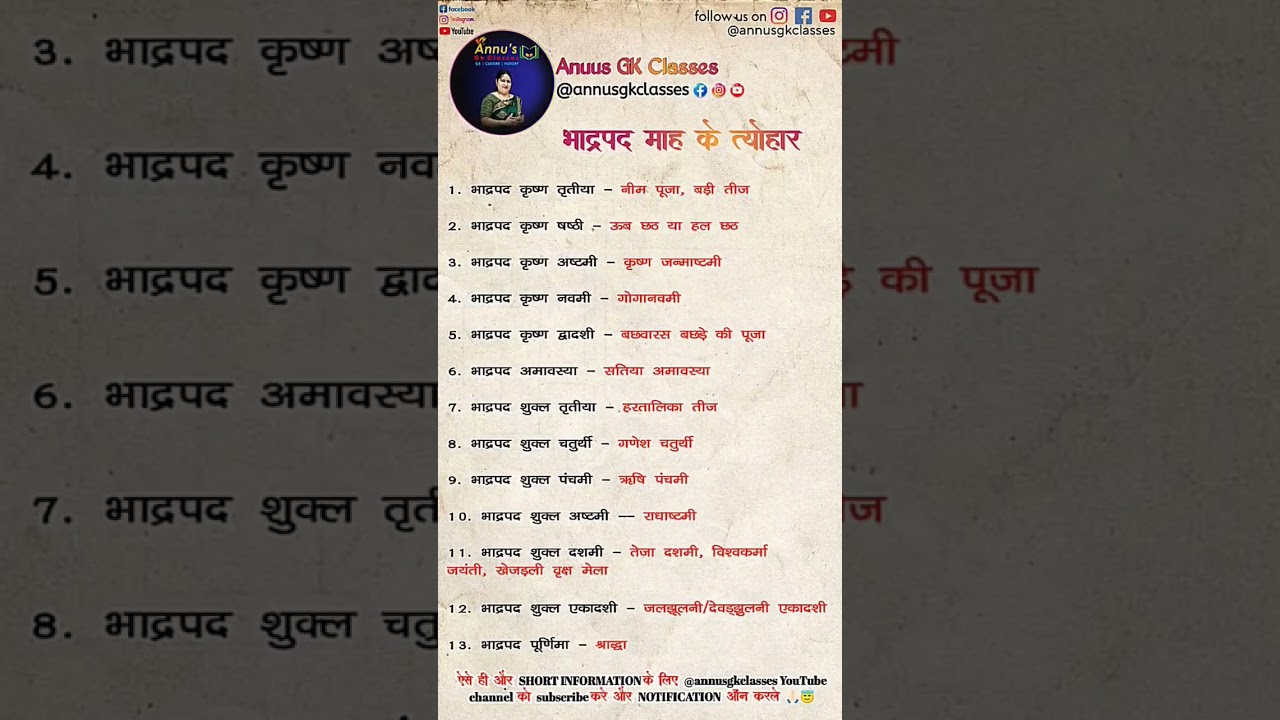 facebook
Instagram
YouTube
follow us on
@annusgkclasses
Annu's
Gk Classes
GK | CULTURE | HISTORY
Anuus GK Classes
@annusgkclasses
भाद्रपद माह के त्योहार
1. भाद्रपद कृष्ण तृतीया – नीम पूजा, बड़ी तीज
2. भाद्रपद कृष्ण षष्ठी – ऊब छठ या हल छठ
3. भाद्रपद कृष्ण अष्टमी – कृष्ण जन्माष्टमी
4. भाद्रपद कृष्ण नवमी – गोगानवमी
5. भाद्रपद कृष्ण द्वादशी – बछवारस बछड़े की पूजा
6. भाद्रपद अमावस्या – सतिया अमावस्या
7. भाद्रपद शुक्ल तृतीया – हरतालिका तीज
8. भाद्रपद शुक्ल चतुर्थी – गणेश चतुर्थी
9. भाद्रपद शुक्ल पंचमी – ऋषि पंचमी
10. भाद्रपद शुक्ल अष्टमी –– राधाष्टमी
11. भाद्रपद शुक्ल दशमी – तेजा दशमी, विश्वकर्मा
जयंती, खेजड़ली वृक्ष मेला
12. भाद्रपद शुक्ल एकादशी – जलझूलनी/देवड्झुलनी एकादशी
13. भाद्रपद पूर्णिमा – श्राद्धा
ऐसे ही और SHORT INFORMATION के लिए @annusgkclasses YouTube
channel को subscribe करे और NOTIFICATION ऑन करले 🙏🏻😇
3. भाद्रपद कृष्ण अष्
मी
4. भाद्रपद कृष्ण नव
5. भाद्रपद कृष्ण द्वाद
ड़े की पूजा
6. भाद्रपद अमावस्य
7. भाद्रपद शुक्ल तृती
ज
8. भाद्रपद शुक्ल चतु